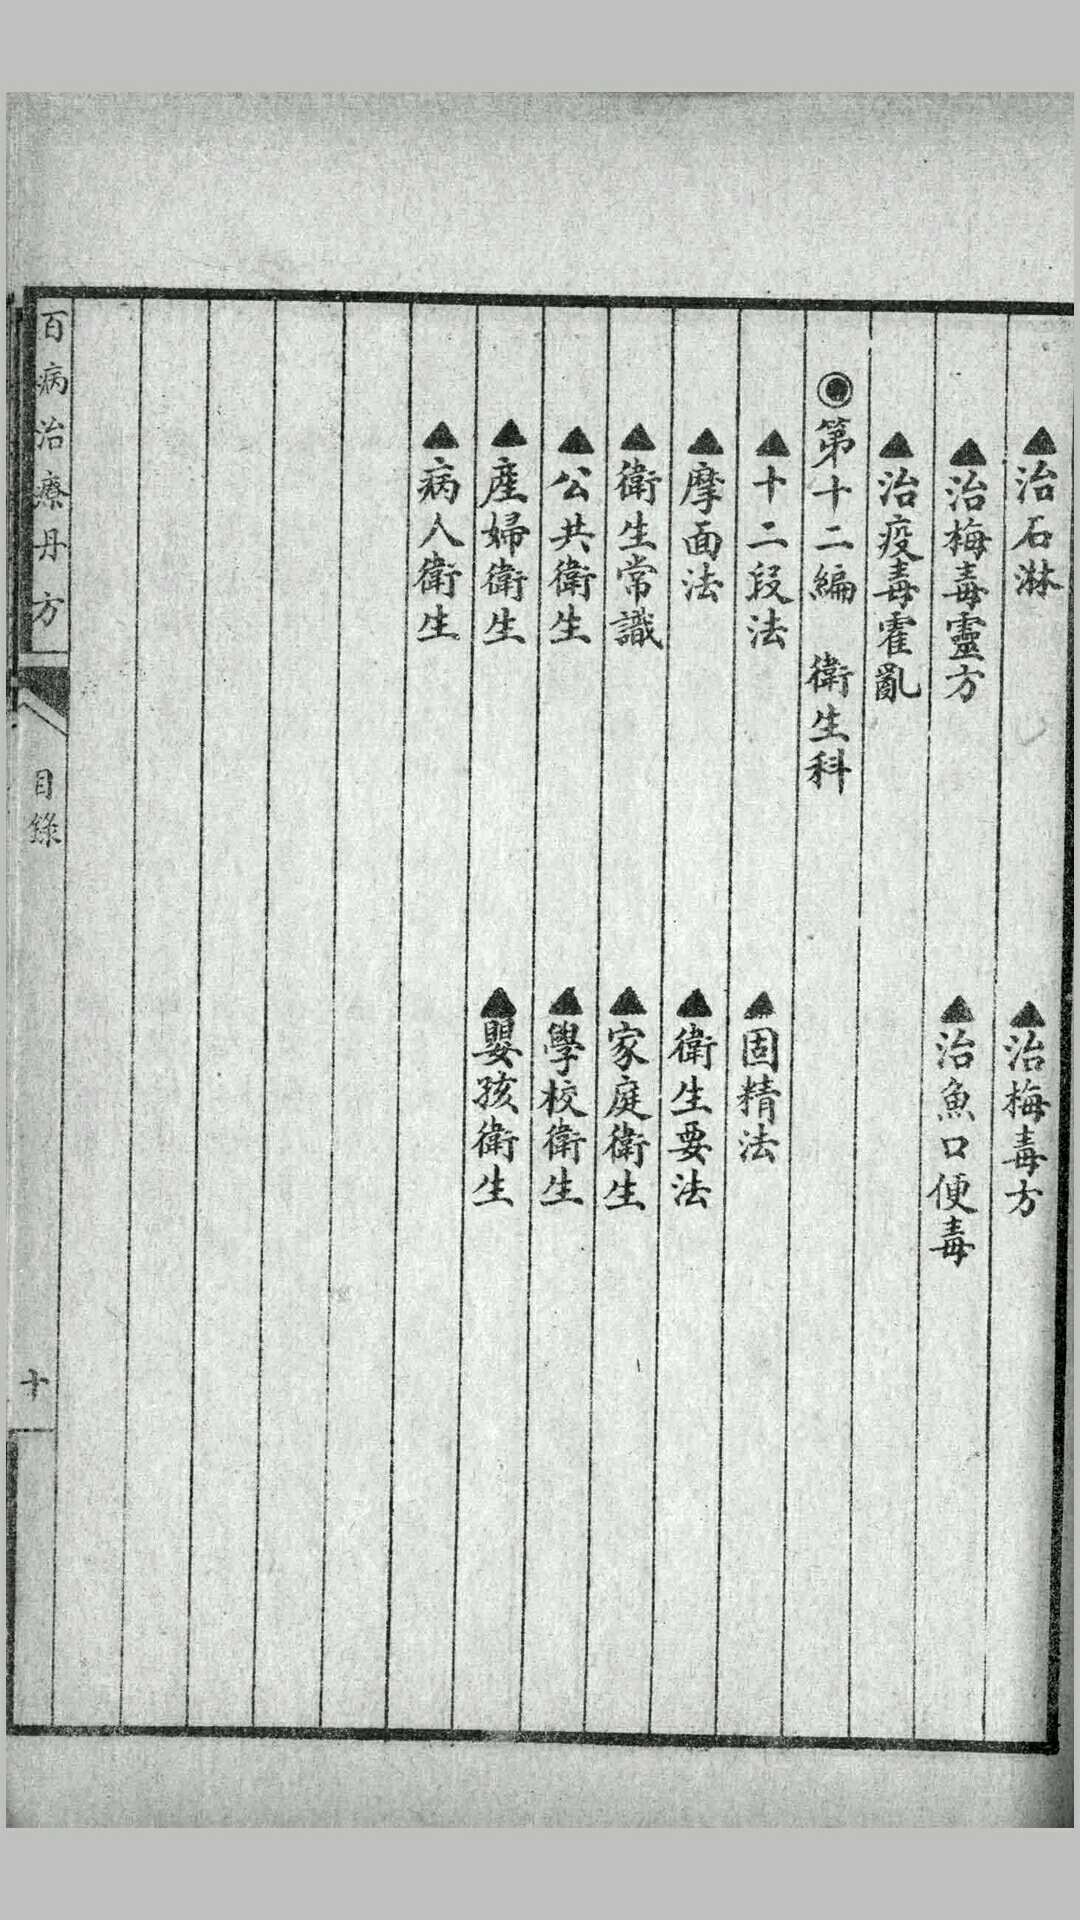 ▲治石淋　▲治梅毒方
▲治梅毒靈方　▲治魚口便毒
▲治疫毒霍亂
◉第十二編　衛生科
▲十二段法　▲固精法
▲摩面法　▲衛生要法
▲衛生常識　▲家庭衛生
▲公共衛生　▲學校衛生
▲產婦衛生　▲嬰孩衛生
▲病人衛生
百病治療丹方　目錄　十